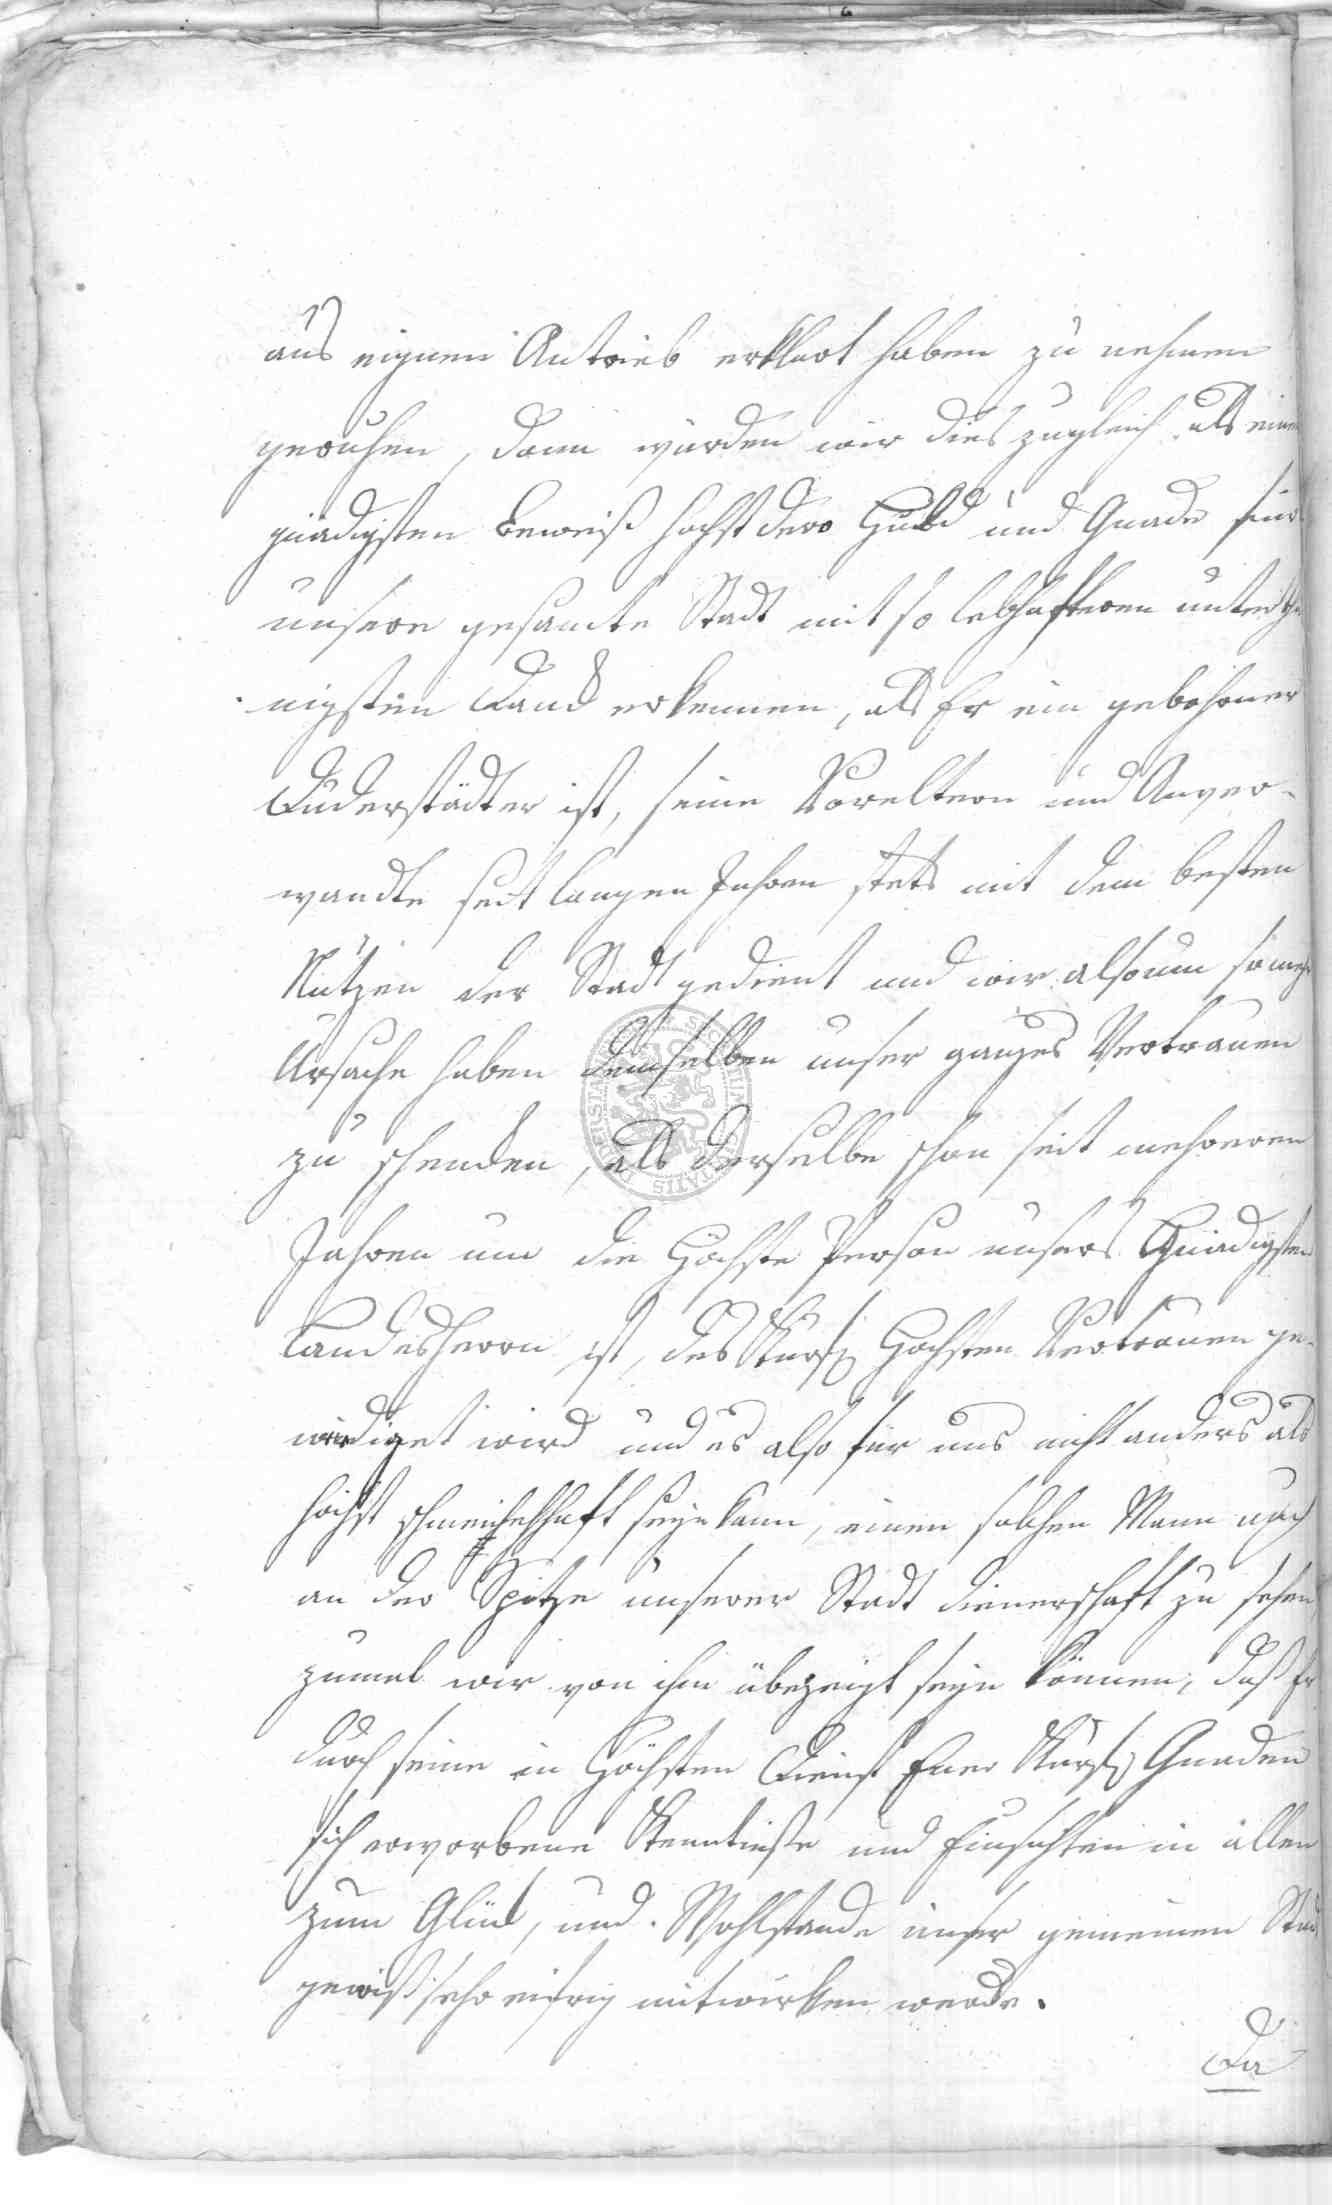 aus eignem Antrieb erklärt haben zu nehmen
geruhen, dann würden wir dies zugleich als einen
gnädigsten Beweiß höchst dero Huld und Gnade für
unsere gesamte Stadt mit so lebhafteren untertha-
nigsten Dank erkennen, als Er ein gebohrner
Duderstädter ist, seine Voreltern und Anver-
wandte seit langen Jahren stets mit dem besten
Nutzen der Stadt gedient und wir also um so mehr
Ursache haben demselben unser ganzes Vertrauen
zu schenken, als derselbe schon seit mehreren
Jahren um die Höchste Person unsers Gnädigsten
Landesherrn ist, des Höchsten Vertrauen ge-
würdiget wird und es also für uns nicht anders als
höchst schmeichelhaft seyn kann, einen solchen Mann noch
an der Spitze unserer Stadt dienerschaft zu sehen,
zumal wir von ihm überzeigt seyn können, daß Er
durch seine in Höchsten Dienst Euer Kurfl Gnaden
sich erworbene Kenntniße und Einsichten in allen
zum Glück, und Wohlstande unser gemeinen Stadt
gewiß sehr eifrig mitwürken werde.
Da